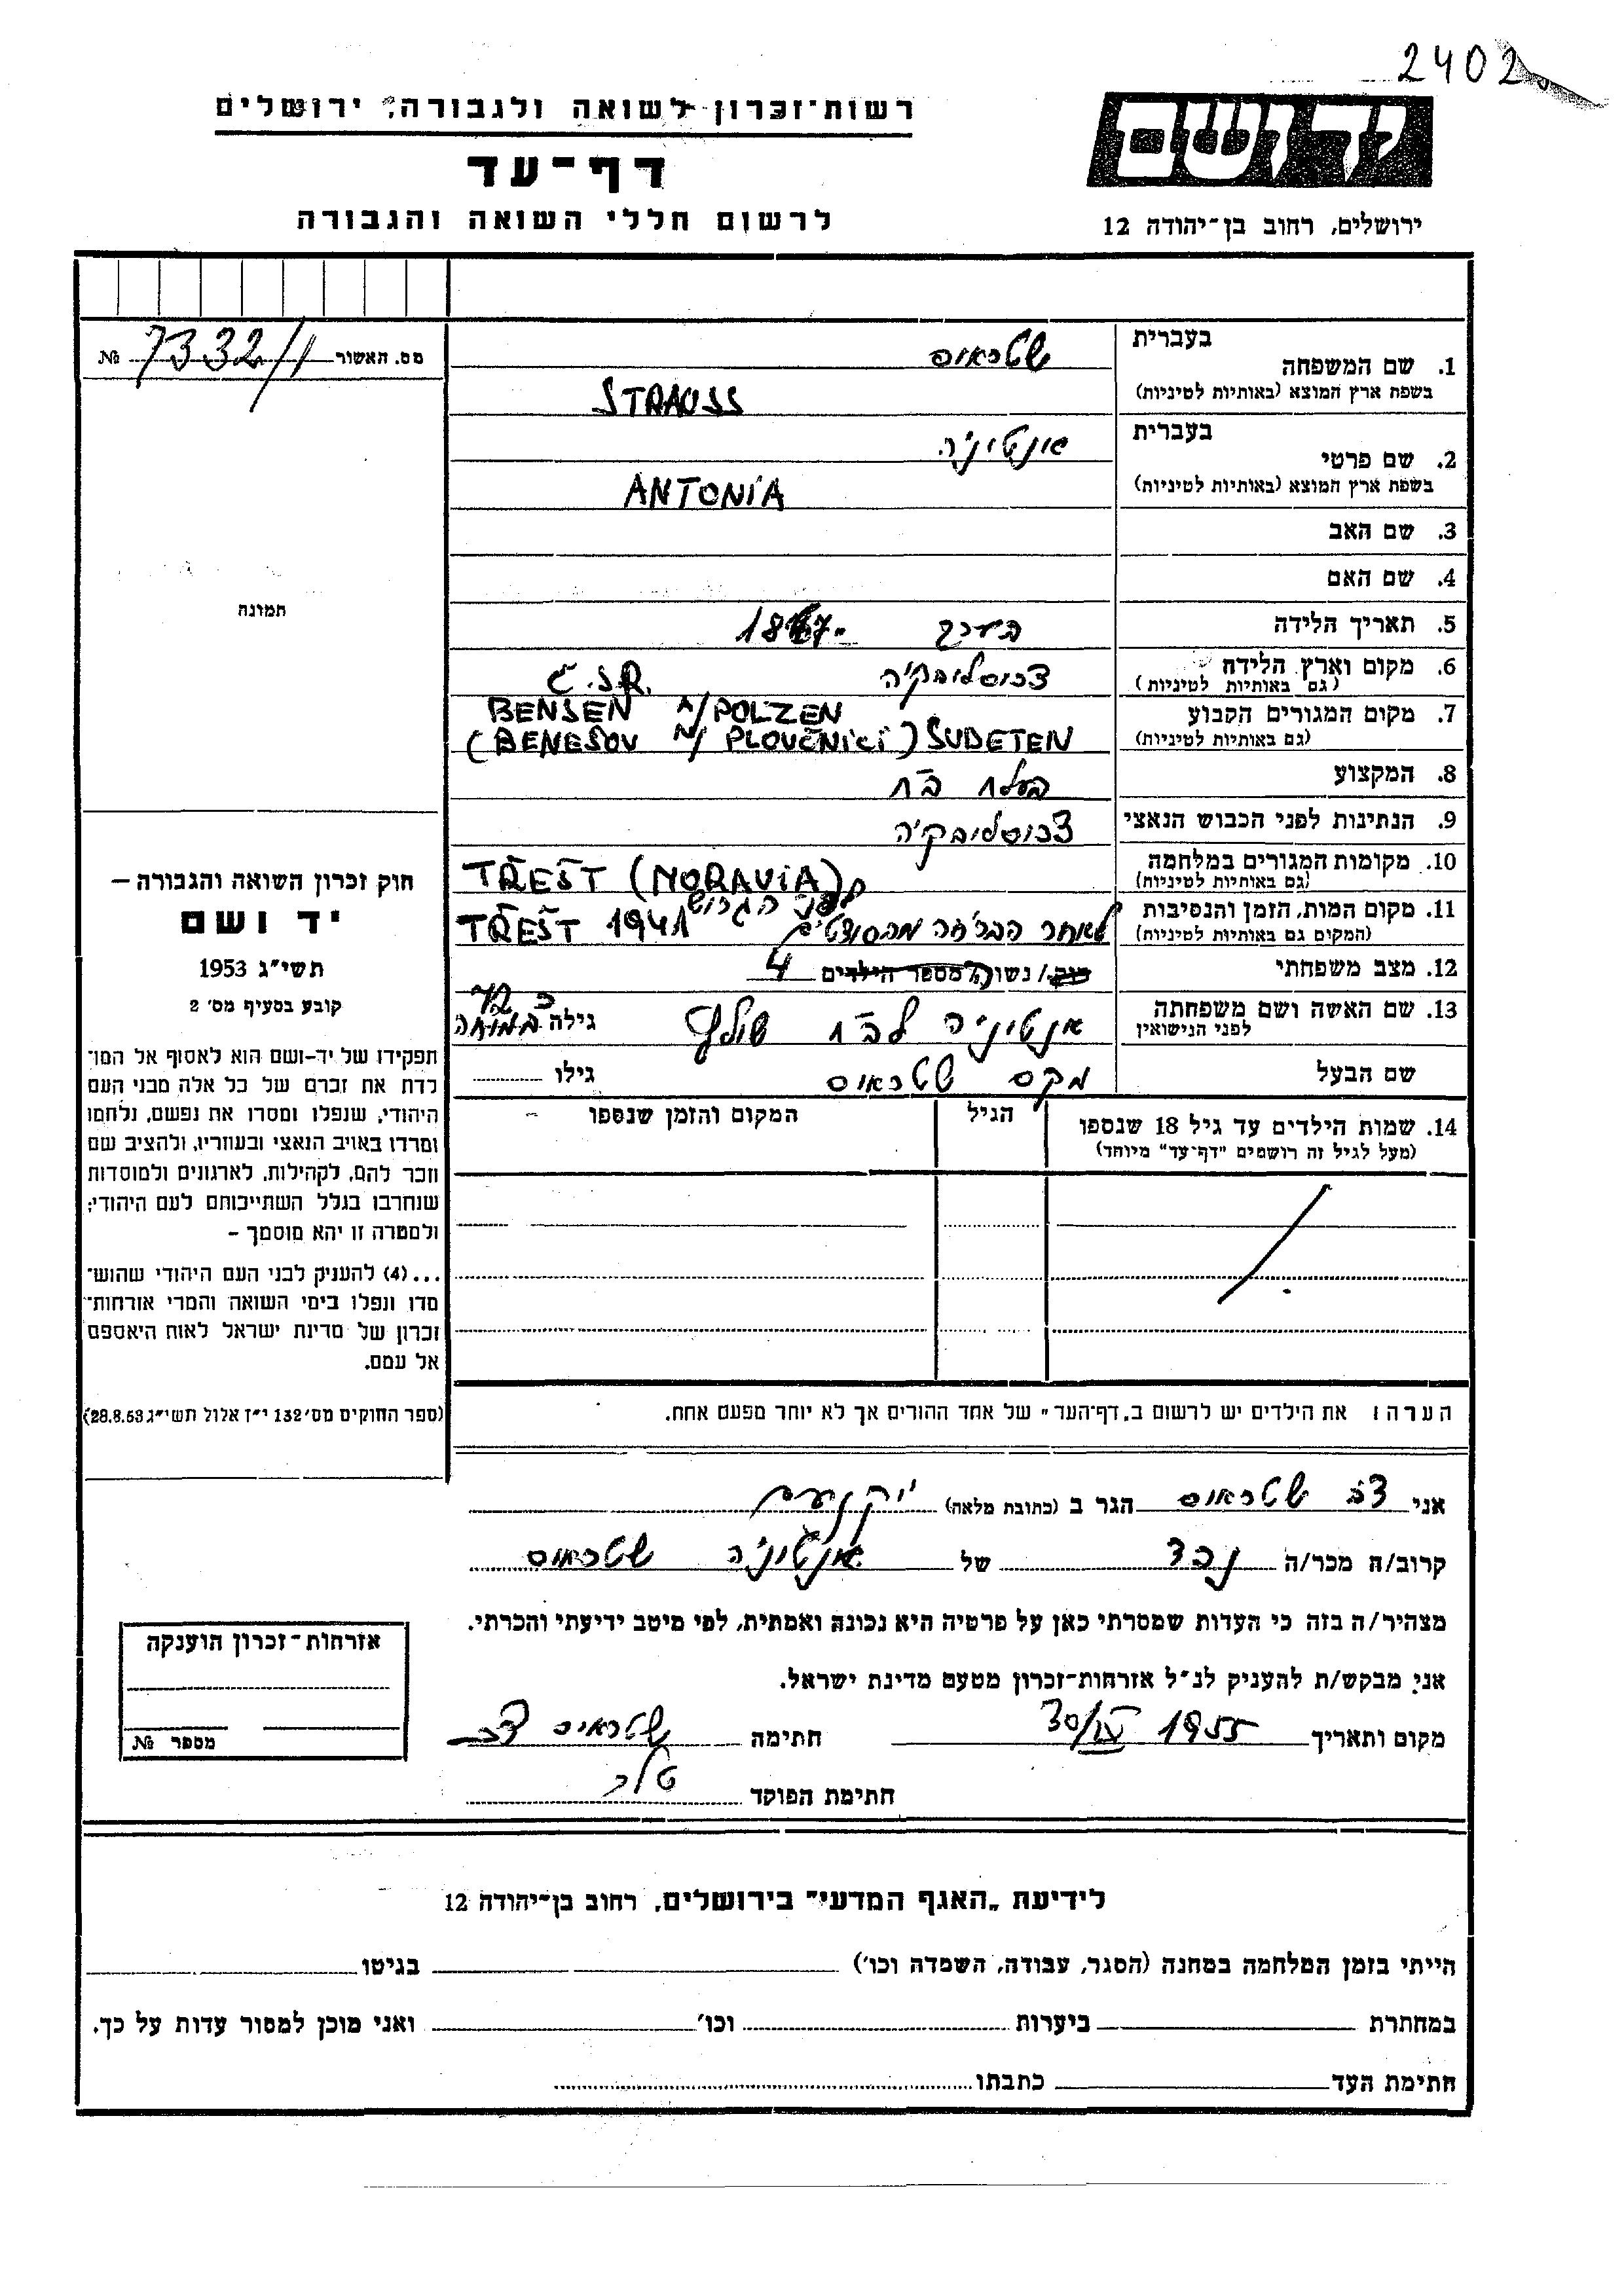 2402
רשות־זכרון לשואה ולגבורה, ירושלים
דף־עד
לרשום חללי השואה והגבורה
יד ושם
ירושלים, רחוב בן־יהודה 12
מס. האשור 7332/1 №
בעברית
1. שם המשפחה שטראוס
בשפת ארץ המוצא (באותיות לטיניות) STRAUSS
בעברית
2. שם פרטי אנטוניה
בשפת ארץ המוצא (באותיות לטיניות) ANTONIA
3. שם האב
4. שם האם
5. תאריך הלידה בערך
6. מקום וארץ הלידה צ'כוסלובקיה Č.S.R.
(גם באותיות לטיניות)
7. מקום המגורים הקבוע BENSEN A/POLZEN
(גם באותיות לטיניות) (BENEŠOV N/ PLOUČNICI) SUDETEN
8. המקצוע בעלת בית
9. הנתינות לפני הכבוש הנאצי צ'כוסלובקיה
10. מקומות המגורים במלחמה TŘEŠT (MORAVIA)
(גם באותיות לטיניות)
11. מקום המות, הזמן והנסיבות לפני הגרוש
(המקום גם באותיות לטיניות) לאחר הבריחה מהסודטים TŘEŠT 1941
12. מצב משפחתי רוק/ נשוי/ מספר הילדים 4
13. שם האשה ושם משפחתה אנטוניה לבית גילה 72 במותה
לפני הנישואין
שם הבעל מקס שטראוס גילו
14. שמות הילדים עד גיל 18 שנספו הגיל המקום והזמן שנספו
(מעל לגיל זה רושמים "דף־עד" מיוחד)
הערה: את הילדים יש לרשום ב„דף־העד" של אחד ההורים אך לא יותר מפעם אחת.
תמונה
חוק זכרון השואה והגבורה —
יד ושם
תשי״ג 1953
קובע בסעיף מס׳ 2
תפקידו של יד־ושם הוא לאסוף אל המו־
לדת את זכרם של כל אלה מבני העם
היהודי, שנפלו ומסרו את נפשם, נלחמו
ומרדו באויב הנאצי ובעוזריו, ולהציב שם
וזכר להם, לקהילות, לארגונים ולמוסדות
שנחרבו בגלל השתייכותם לעם היהודי;
ולמטרה זו יהא מוסמך —
...(4) להעניק לבני העם היהודי שהוש־
מדו ונפלו בימי השואה והמרי אזרחות־
זכרון של מדינת ישראל לאות היאספם
אל עמם.
(ספר החוקים מס׳ 132 י״ז אלול תשי״ג 28.8.53)
אני צבי שטראוס הגר ב (כתובת מלאה) יקנעם
קרוב/ה מכר/ה נכד של אנטוניה שטראוס
מצהיר/ה בזה כי העדות שמסרתי כאן על פרטיה היא נכונה ואמתית, לפי מיטב ידיעתי והכרתי.
אני מבקש/ת להעניק לנ״ל אזרחות־זכרון מטעם מדינת ישראל.
מקום ותאריך 30/IV 1955 חתימה שטראוס צבי
חתימת הפוקד
אזרחות־זכרון הוענקה
מספר №
לידיעת „האגף המדעי" בירושלים, רחוב בן־יהודה 12
הייתי בזמן המלחמה במחנה (הסגר, עבודה, השמדה וכו׳) בגיטו
במחתרת ביערות וכו׳ ואני מוכן למסור עדות על כך.
חתימת העד כתבתו